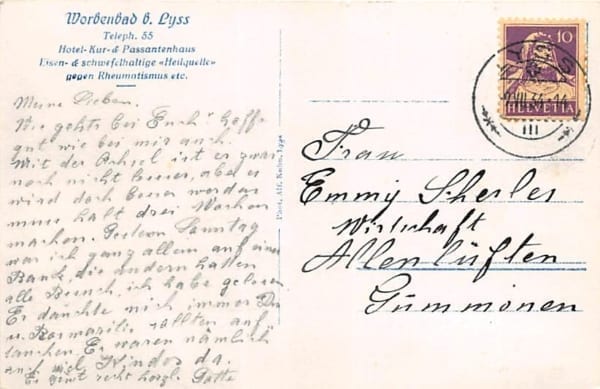 Worbenbad b. Lyss
Teleph. 55
Hotel-Kur- & Passantenhaus
Eisen- & schwefelhaltige «Heilquelle»
gegen Rheumatismus etc.
Meine Lieben.
Wie gehts bei Euch? hoffe
gut wie bei mir auch.
Mit der Achsel ist er zwar
noch nicht besser, aber es
wird doch besser werden
muss halt drei Wochen
machen. Gestern Sonntag
war ich ganz allein auf einer
Bank, die andern hatten
alle Besuch, ich habe gelesen
Er dauchte mich immer Du
u. Rosmarili sollten auf
tauchen. Es waren nämlich
auch viel Kinder da.
Es grüsst recht herzl.
Phot. Alf. Kuhn, Lyss
10
HELVETIA
LYSS
III
Frau
Emmy
Wirtschaft
Allenlüften
Gümmenen